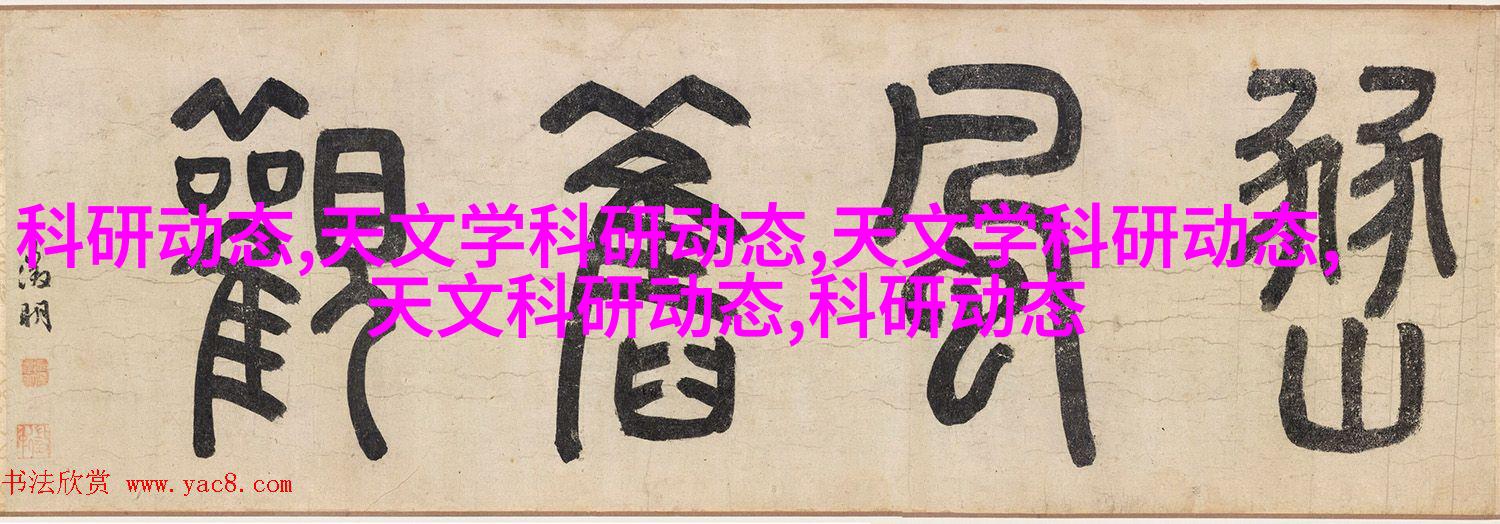 豳風舊觀
科研动态,天文学科研动态,天文学科研动态,
天文科研动态,科研动态
徵明
书法欣赏 www.yac8.com